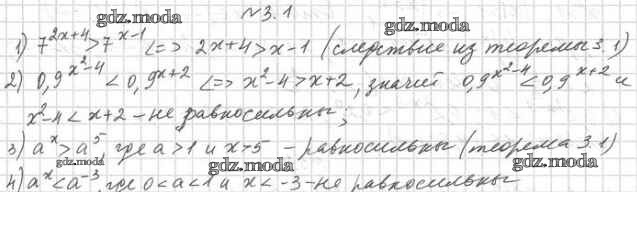 №3.1
gdz.moda
gdz.moda
1) 7^{2x+4}>7^{x-1} <=> 2x+4>x-1 (следствие из теоремы 3.1)
2) 0,9^{x²-4} < 0,9^{x+2} <=> x²-4>x+2, значит 0,9^{x²-4} < 0,9^{x+2} и
x²-4<x+2 - не равносильны;
3) a^x > a^5, где a>1 и x>5 - равносильны (теорема 3.1)
gdz.moda
gdz.moda
gdz.moda
4) a^x < a^{-3}, где 0<a<1 и x<-3 - не равносильны